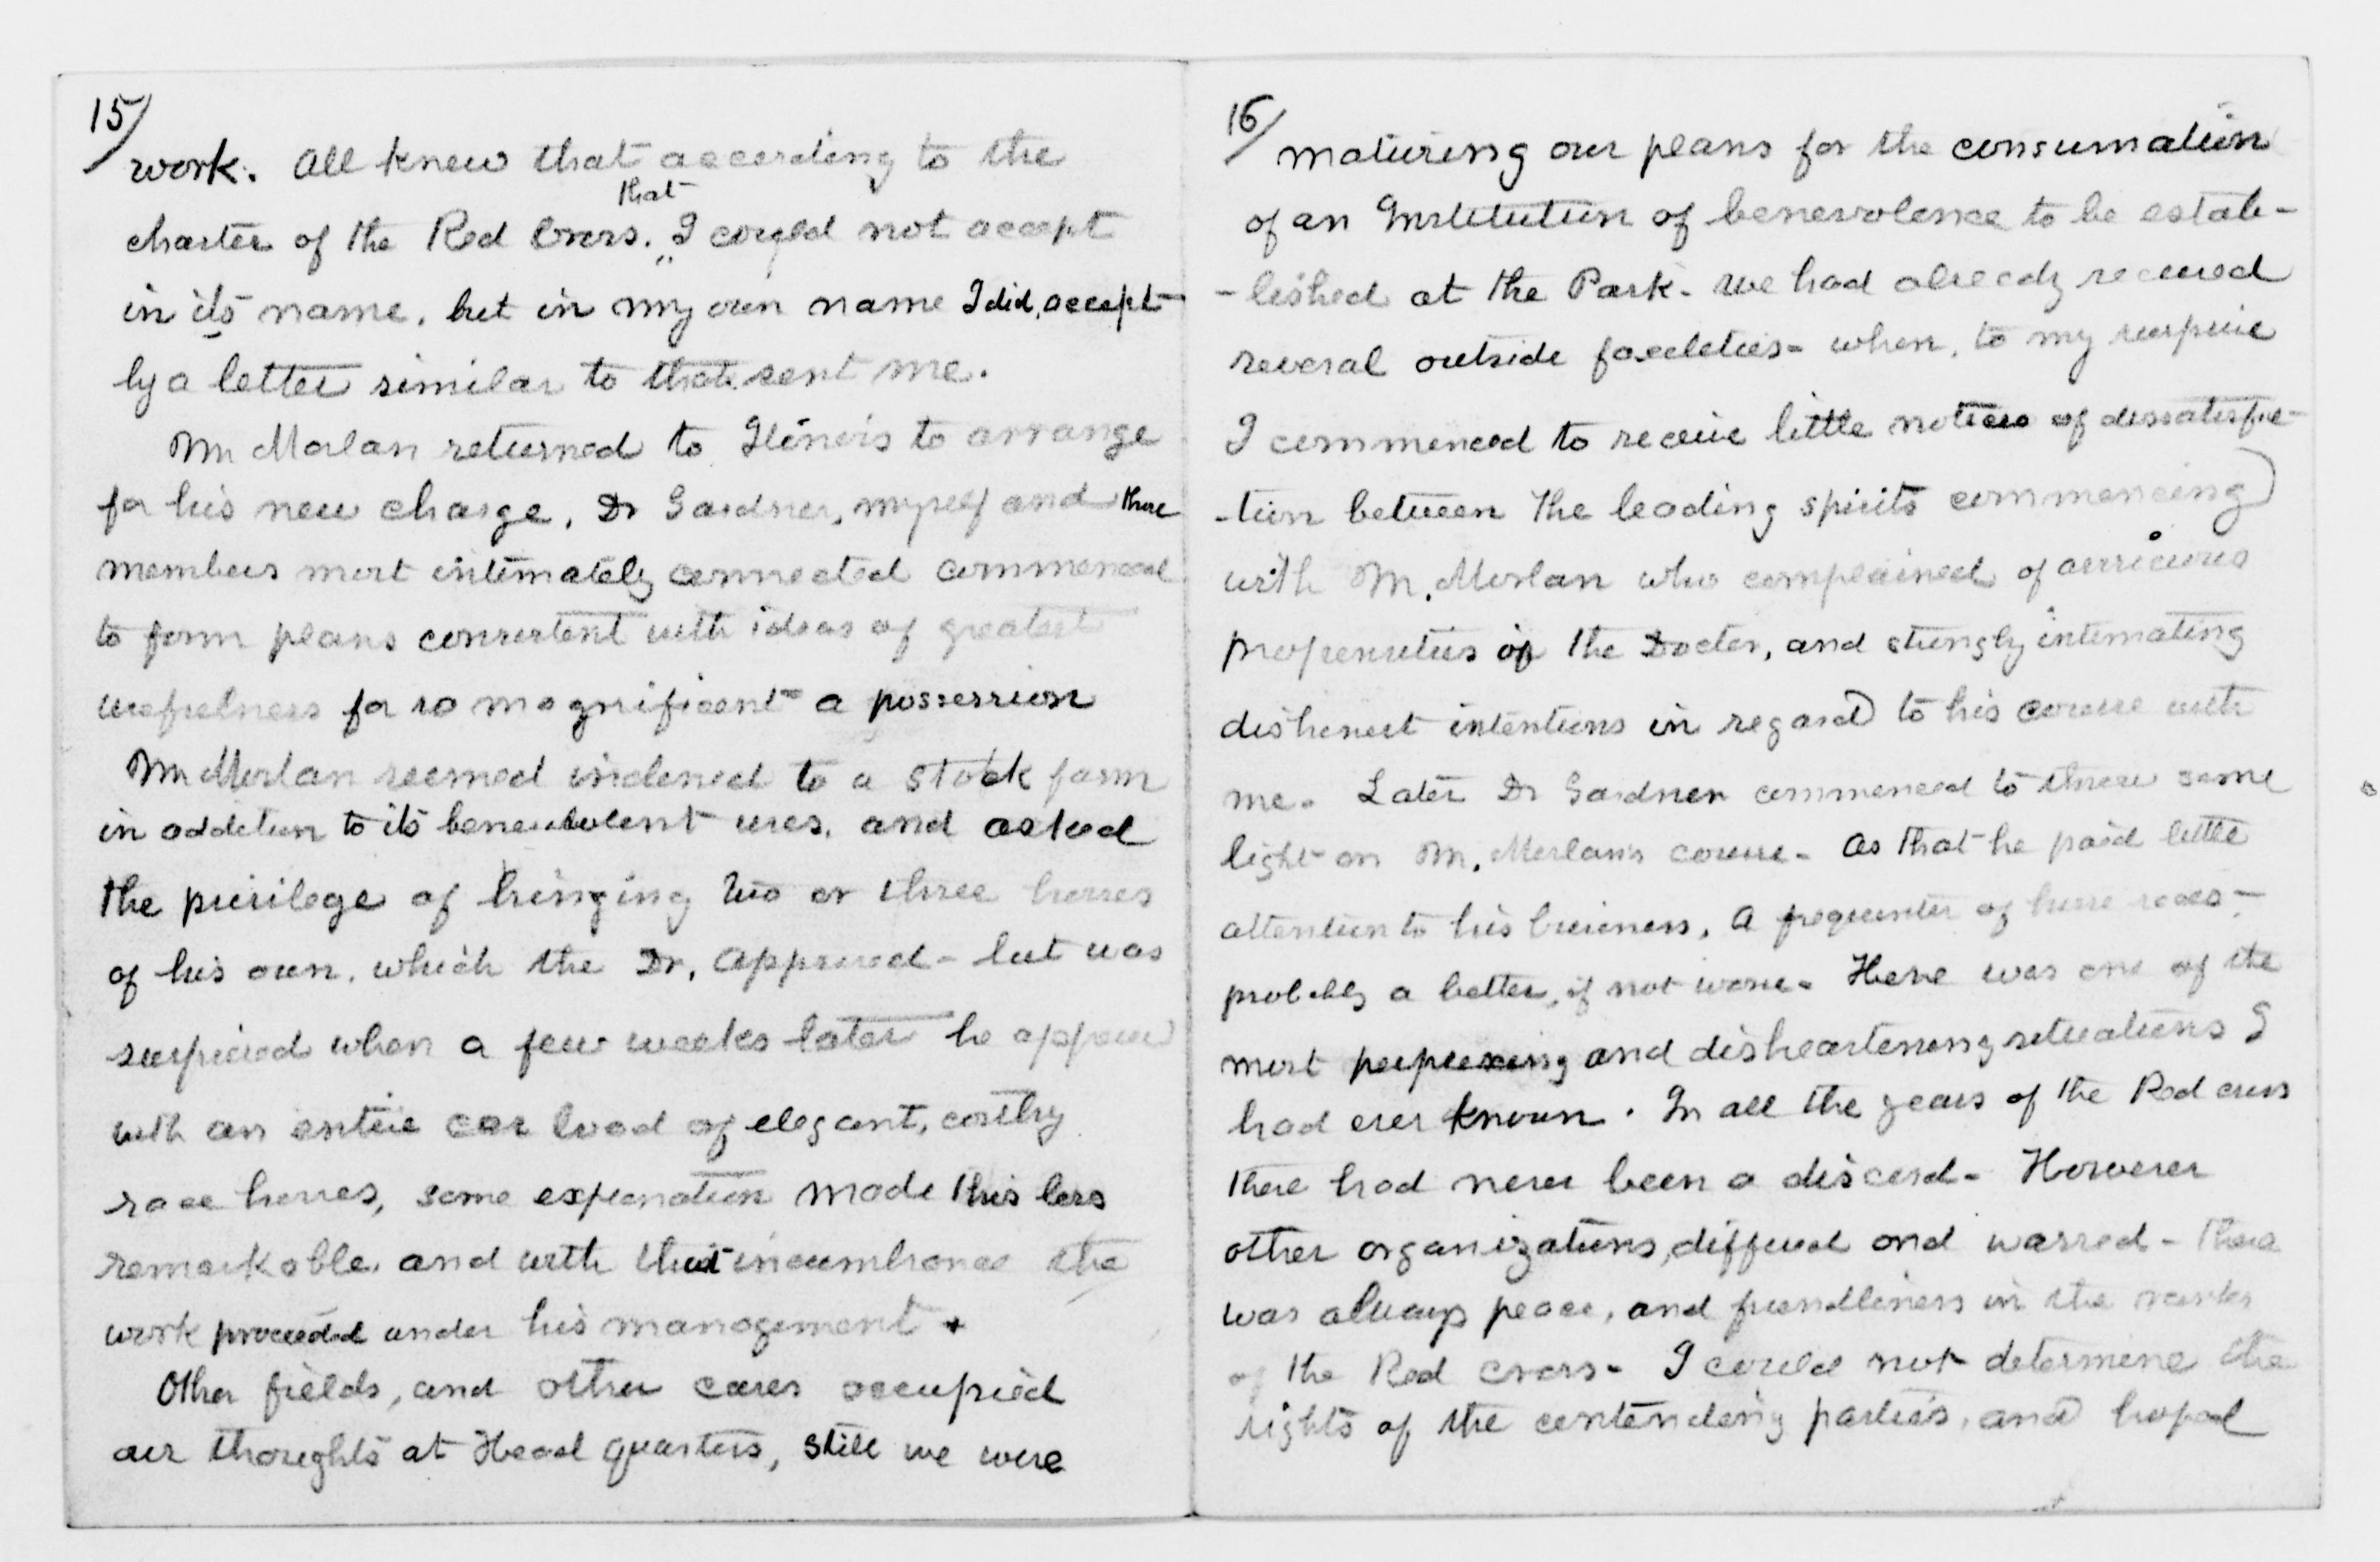 15/
work. All knew that according to the
that
charter of the Red Cross. I could not accept
in its name, but in my own name I did, accept
by a letter similar to that sent me.
Mr Morlan returned to Illinois to arrange
for his new charge, Dr Gardner, myself and three
members most intimately connected commenced
to form plans consistent with ideas of greatest
usefulness for so magnificent a possession
Mr Morlan seemed inclined to a stock farm
in addition to its benevolent uses, and asked
the privilege of bringing two or three horses
of his own, which the Dr. approved - but was
surprised when a few weeks later he appeared
with an entire car load of elegant, costly
race horses, some explanation made this less
remarkable, and with that incumbrance the
work proceeded under his management
Other fields, and other cares occupied
our thoughts at Head quarters, still we were
16/
maturing our plans for the consumation
of an Institution of benevolence to be estab-
-lished at the Park - we had already received
several outside facilities - when, to my surprise
I commenced to receive little notices of dissatisfac-
-tion between the leading spirits commencing
with Mr. Morlan who complained of
propensities of the Doctor, and strongly intimating
dishonest intentions in regard to his course with
me. Later Dr Gardner commenced to throw some
light on Mr. Morlan's course - As that he paid little
attention to his business, a frequenter of horse races -
probably a better, if not worse. Here was one of the
most perplexing and disheartening situations I
had ever known. In all the years of the Red cross
there had never been a discord - However
other organizations, differed and warred - there
was always peace, and friendliness in the ranks
of the Red cross - I could not determine the
rights of the contending parties, and hoped